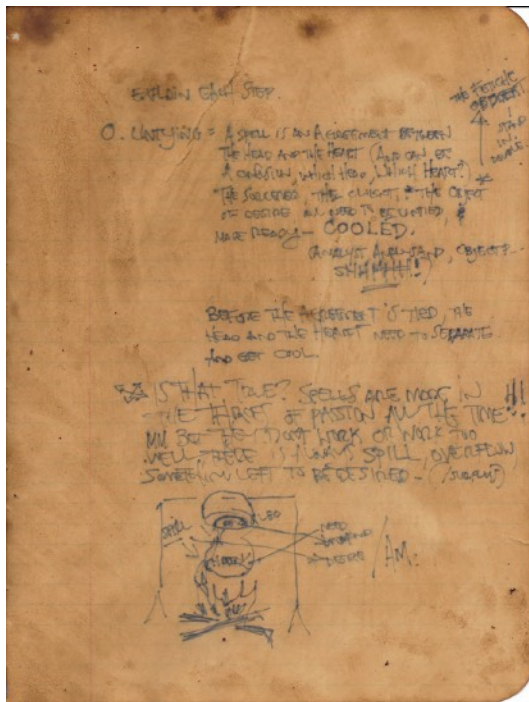 EXPLAIN EACH STEP.
THE FETICHE
OBJECT
STAND
IN:
DOUBLE.
O. UNTYING = A SPELL IS AN AGREEMENT BETWEEN
THE HEAD AND THE HEART (AND CAN BE
A CONFUSION, WHICH HEAD, WHICH HEART?)
THE SORCERER, THE CLIENT, & THE OBJECT
OF DESIRE ALL NEED TO BE UNTIED, &
MADE READY — COOLED.
(ANALYST ANALYSAND, OBJECT?—
SHHHHH!)
BEFORE THE AGREEMENT IS TIED, THE
HEAD AND THE HEART NEED TO SEPARATE
AND GET COOL
IS THAT TRUE? SPELLS ARE MADE IN
THE THROES OF PASSION ALL THE TIME!
BUT THEY DON'T WORK OR WORK TOO
WELL, THERE IS ALWAYS SPILL, OVERFLOW
SOMETHING LEFT TO BE DESIRED — (SURPLUS)
SPILL
NEED
DEMAND
DESIRE
/AM.